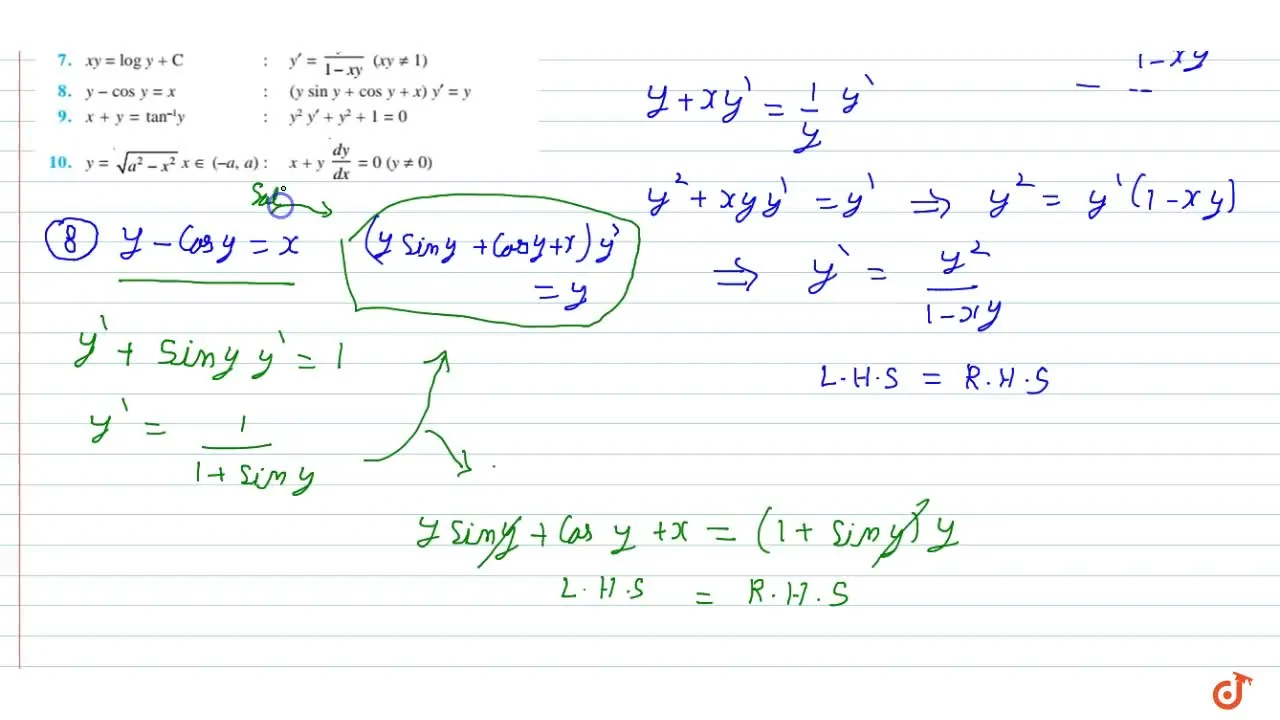 7. xy = log y + C : y′ = / 1 – xy (xy ≠ 1)
8. y – cos y = x : (y sin y + cos y + x) y′ = y
9. x + y = tan⁻¹y : y² y′ + y² + 1 = 0
10. y = √(a² – x²) x ∈ (–a, a) : x + y dy/dx = 0 (y ≠ 0)
1 - xy
y + xy' = 1/y y'
y² + xyy' = y' ⇒ y² = y'(1 - xy)
⇒ y' = y²/(1 - xy)
L.H.S = R.H.S
8 y - Cos y = x (y Sin y + Cos y + x) y'
= y
y' + Sin y y' = 1
y' = 1/(1 + Sin y)
y sin y + Cos y + x = (1 + sin y) y
L.H.S = R.H.S